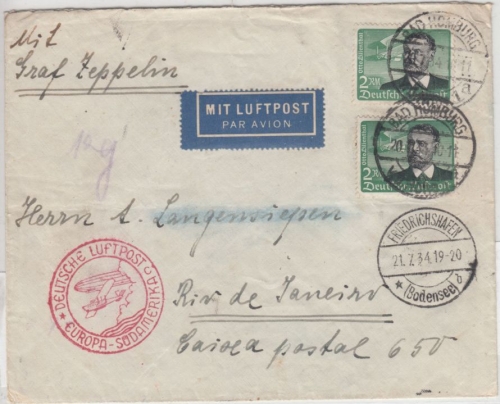 Mit
Graf Zeppelin
MIT LUFTPOST
PAR AVION
BAD HOMBURG
2 RM
Deutsche Luftpost
BAD HOMBURG
20.
2 RM
Deutsche Luftpost
Herrn A. Langensiepen
FRIEDRICHSHAFEN
21.7.34.19-20
* (Bodensee) b
DEUTSCHE LUFTPOST
EUROPA-SÜDAMERIKA
Rio de Janeiro
Caixa postal 650